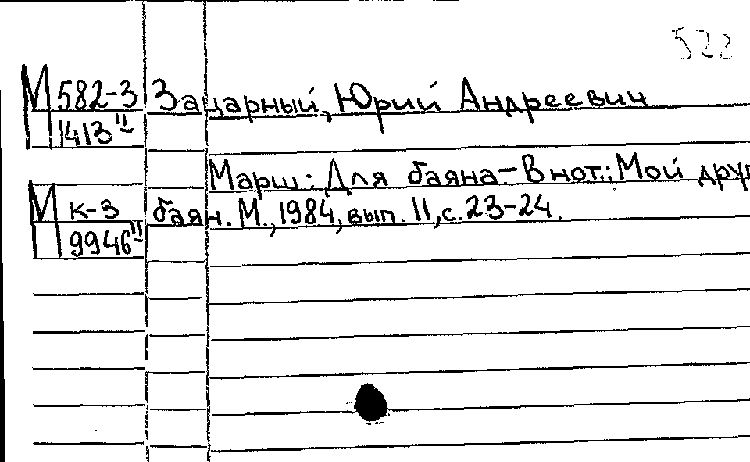 522
М 582-3 Зацарный, Юрий Андреевич
1413 II
Марш: Для баяна.- В нот.: Мой друг
М к-3 баян. М., 1984, вып. 11, с. 23-24.
9946 II